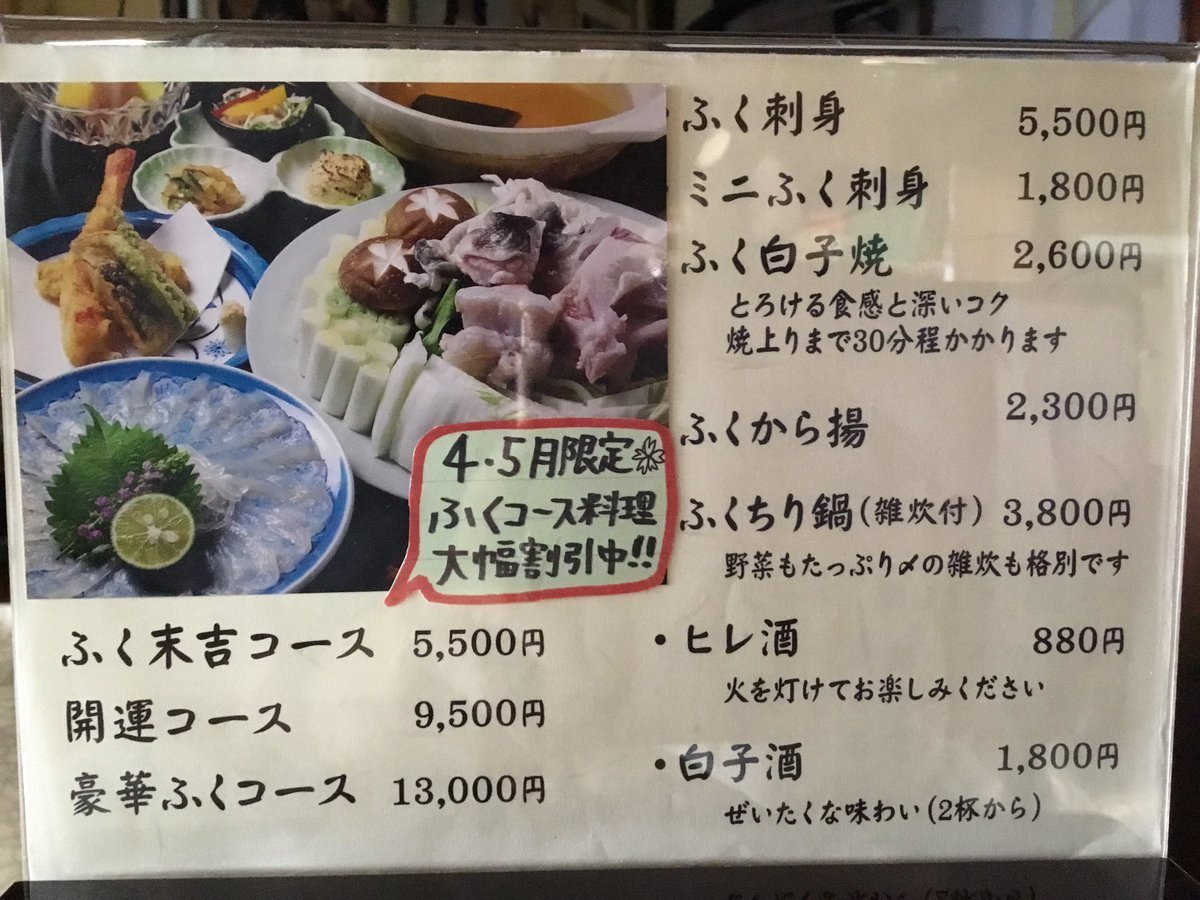 ふく刺身 5,500円
ミニふく刺身 1,800円
ふく白子焼 2,600円
とろける食感と深いコク
焼上りまで30分程かかります
ふくから揚 2,300円
ふくちり鍋(雑炊付) 3,800円
野菜もたっぷり〆の雑炊も格別です
・ヒレ酒 880円
火を灯けてお楽しみください
・白子酒 1,800円
ぜいたくな味わい(2杯から)
4・5月限定
ふくコース料理
大幅割引中!!
ふく末吉コース 5,500円
開運コース 9,500円
豪華ふくコース 13,000円